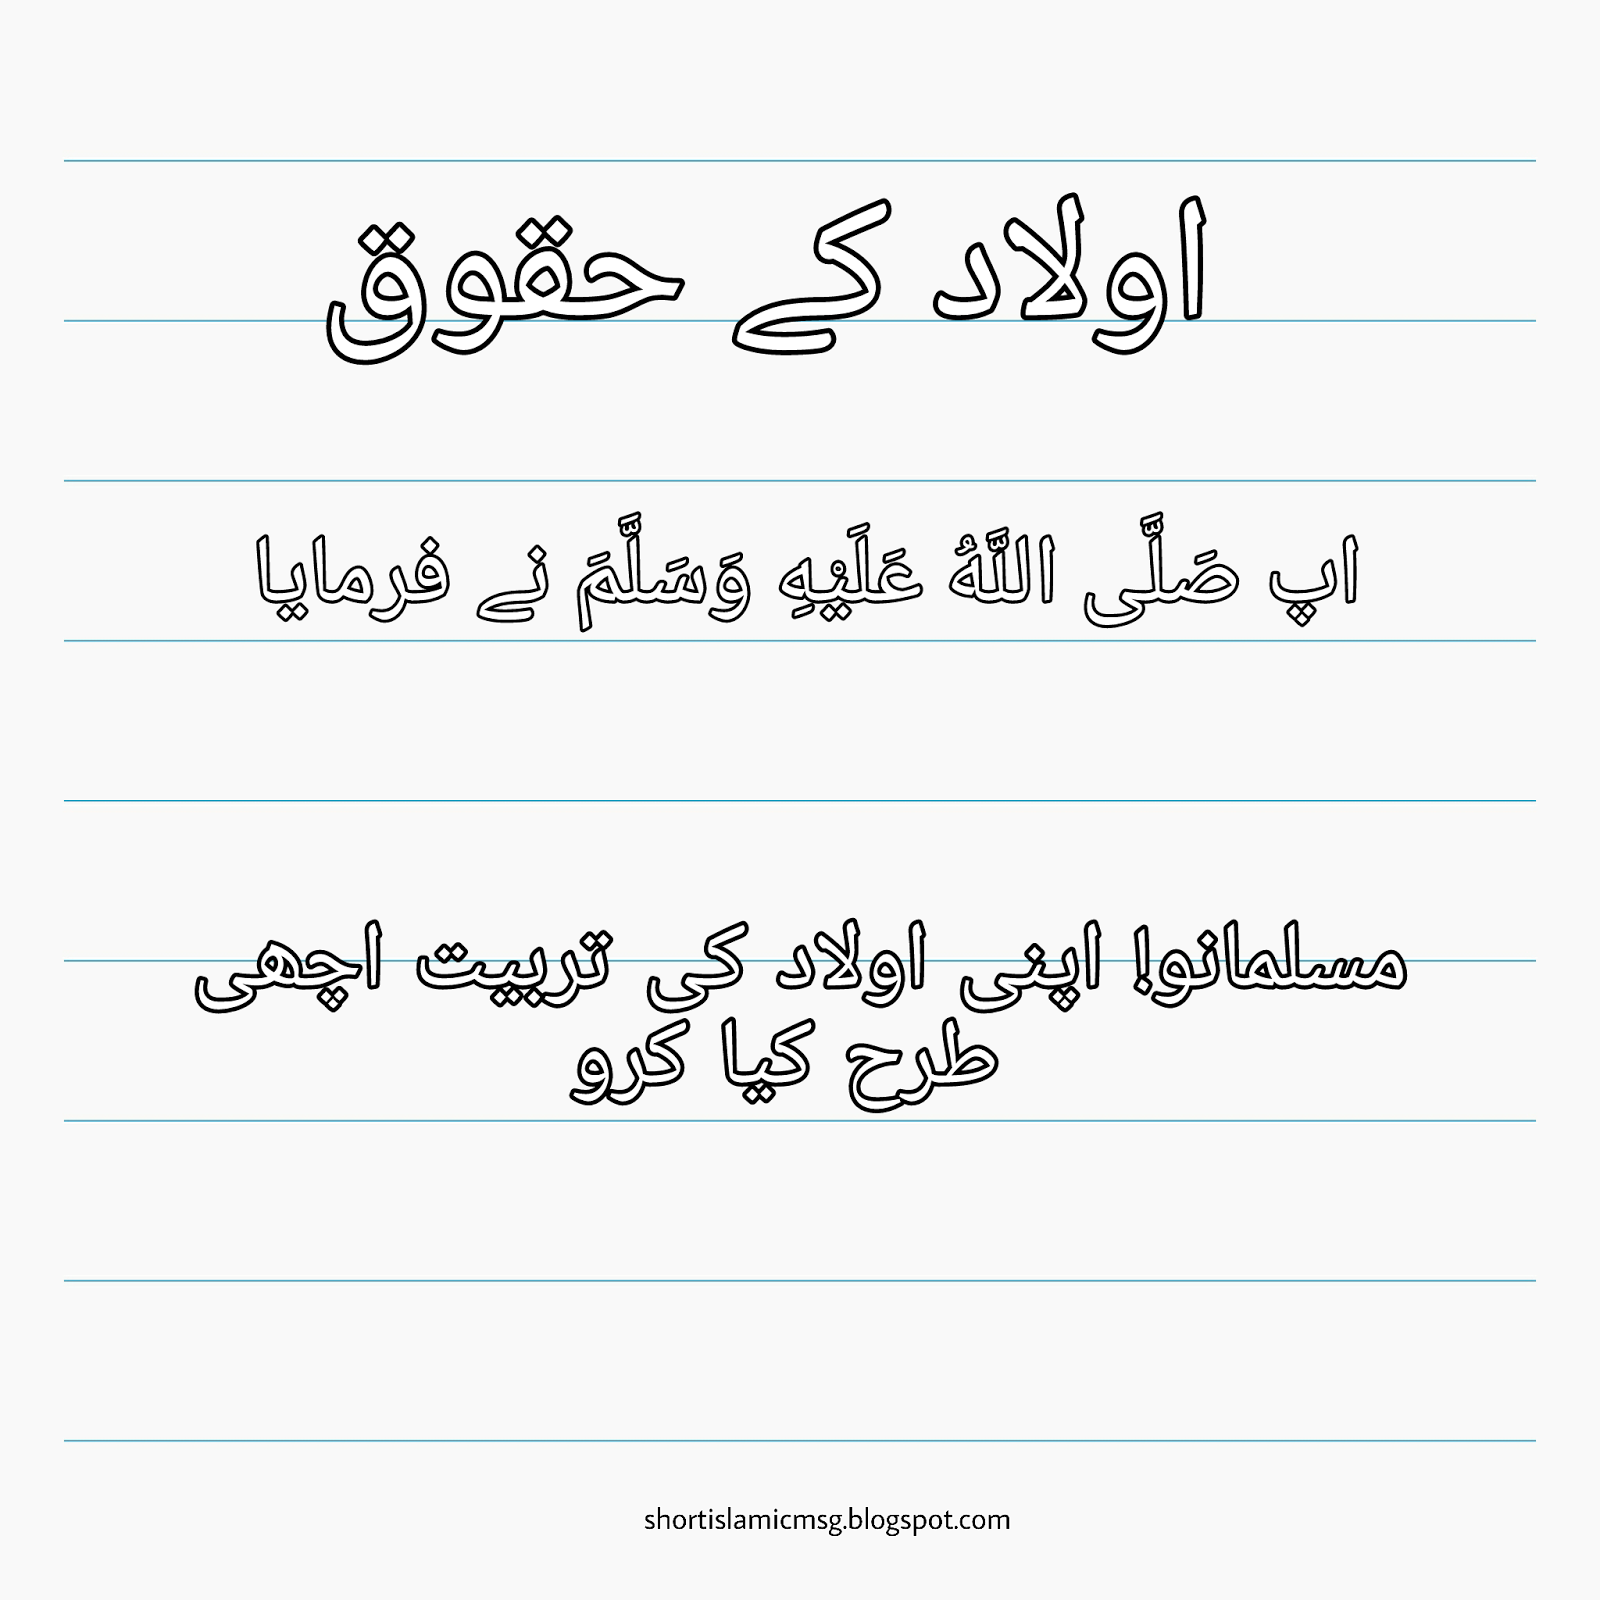 اولاد کے حقوق
اپ صَلَّی اللَّهُ عَلَيْهِ وَسَلَّمَ نے فرمایا
مسلمانو! اپنی اولاد کی تربیت اچھی
طرح کیا کرو
shortislamicmsg.blogspot.com